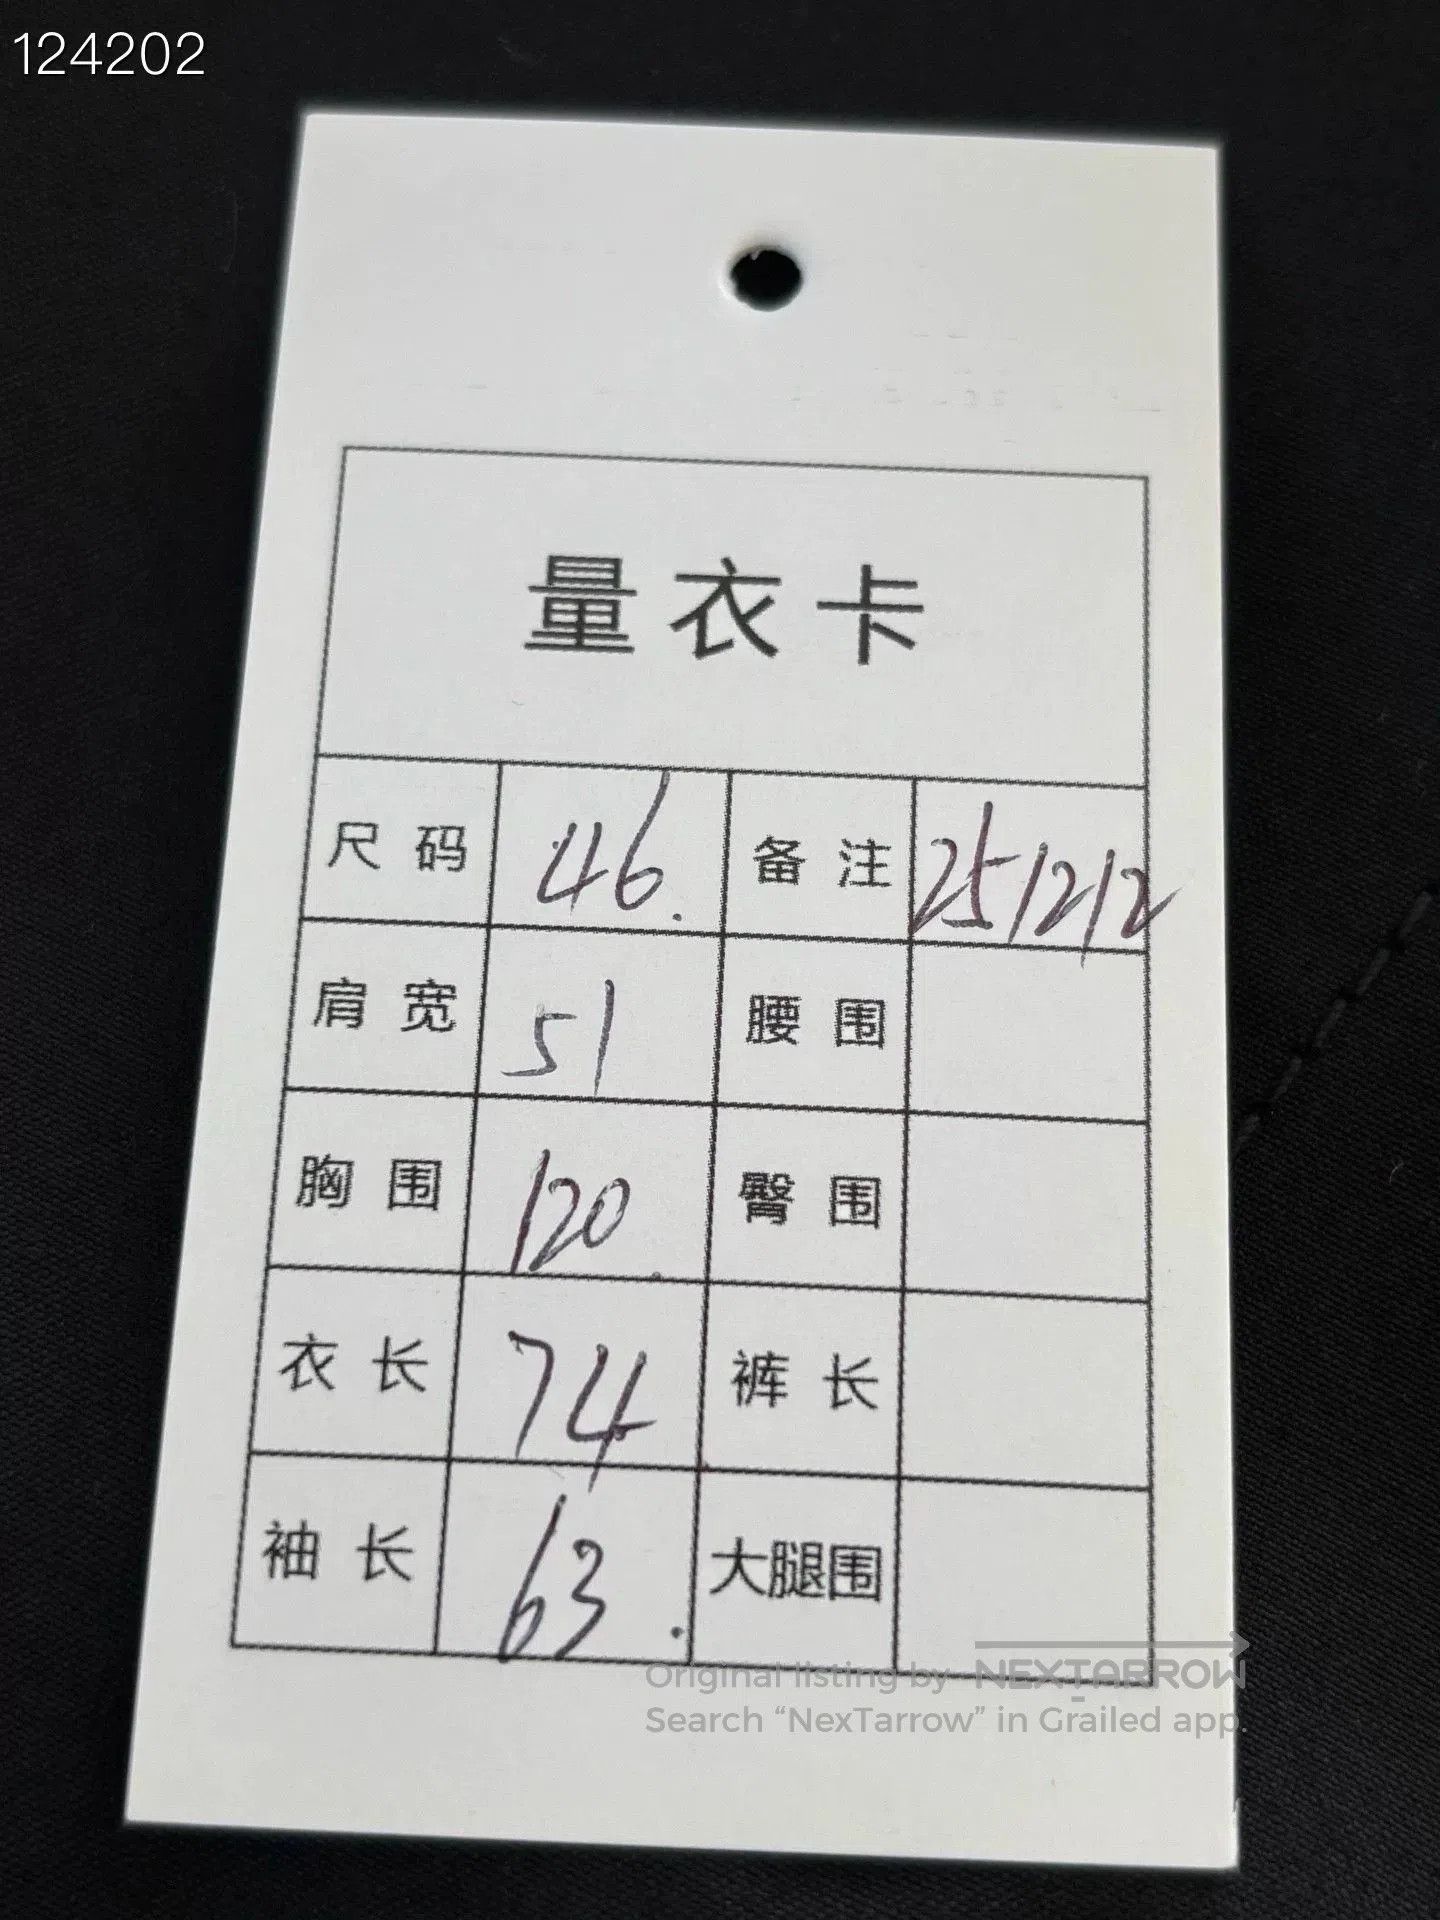 124202
量衣卡
尺码 46. 备注 251212
肩宽 51 腰围
胸围 120. 臀围
衣长 74 裤长
袖长 63. 大腿围
Original listing by NEXTARROW
Search “NexTarrow” in Grailed app.